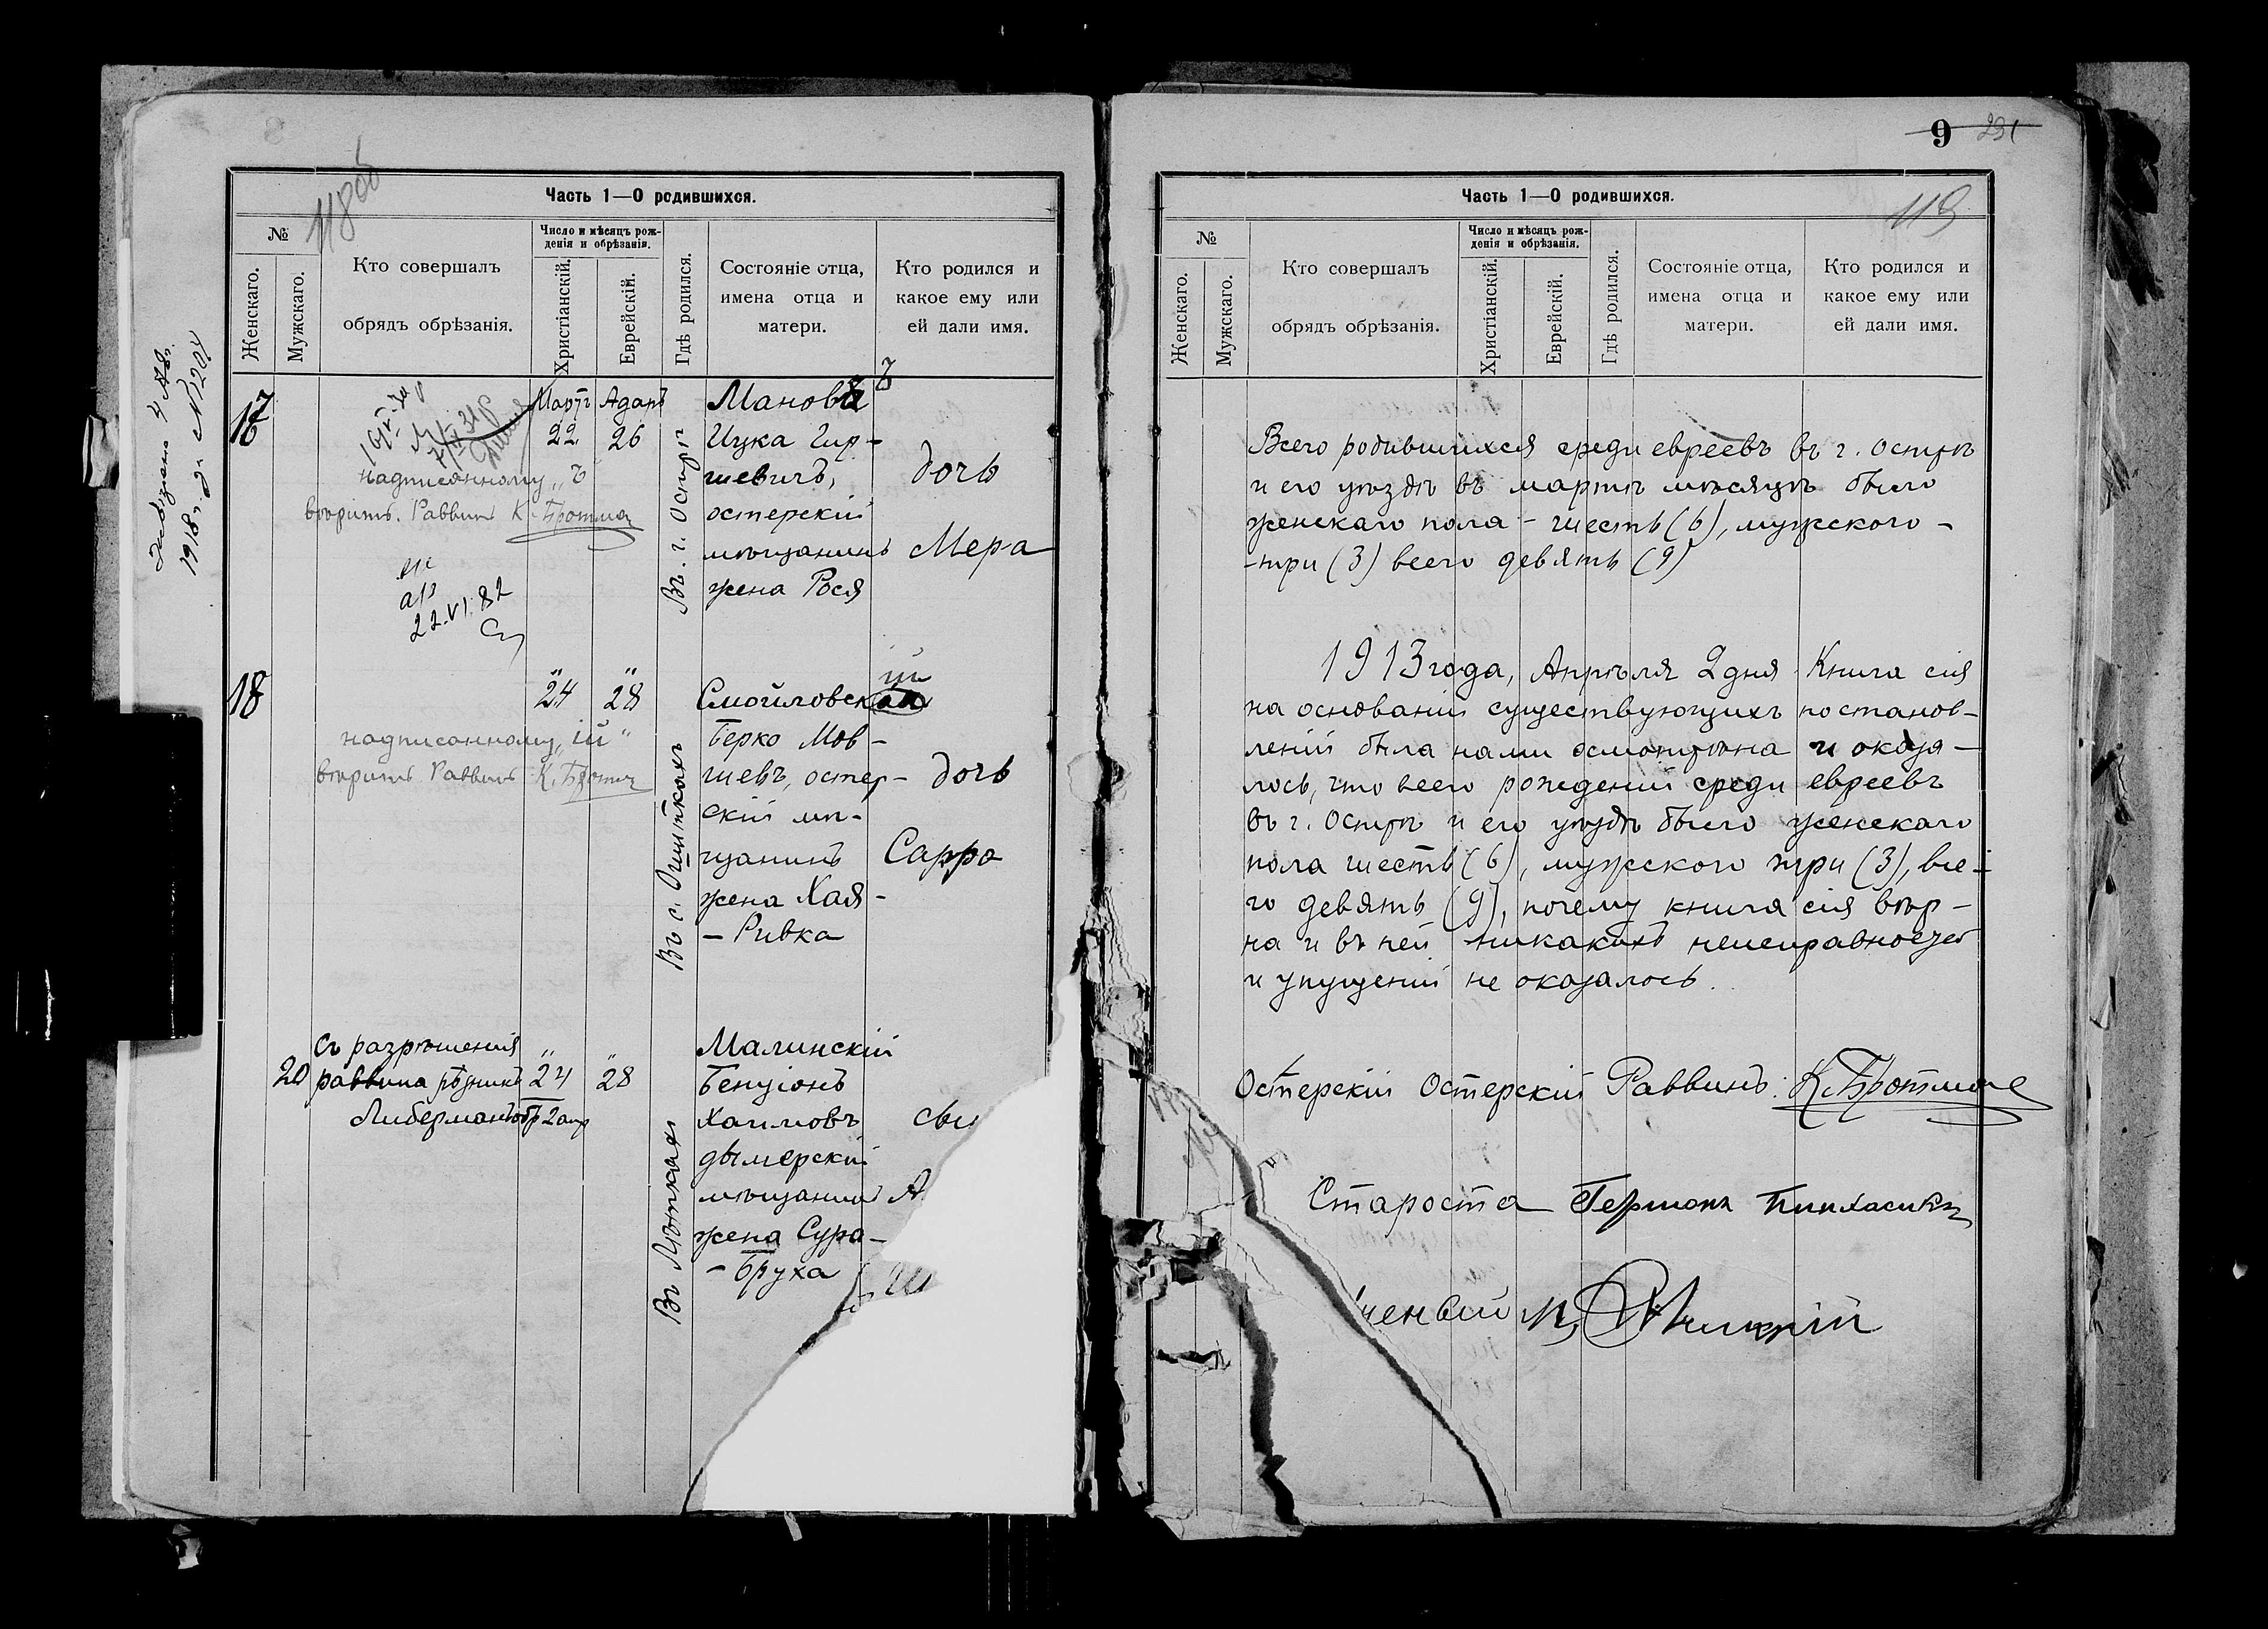 118об
Часть 1—О родившихся.
№
Женскаго.
Мужскаго.
Кто совершалъ
обрядъ обрѣзанія.
Число и мѣсяцъ рож-
денія и обрѣзанія.
Христіанскій.
Еврейскій.
Гдѣ родился.
Состояніе отца,
имена отца и
матери.
Кто родился и
какое ему или
ей дали имя.
17
надписанному „ъ
вѣрить. Раввинъ К. Бротман
22.VI.82
Мартъ
22
Адаръ
26
Въ г. Острѣ
Мановъ
Ицка Гир-
шевичъ,
остерскій
мѣщанинъ
жена Рося
дочь
Мера
18
надписанному „ій"
вѣрить Раввинъ К. Бротман
" 24
" 28
Смойловскій
Берко Мов-
шевъ, остер-
скій мѣ-
щанинъ
жена Хая-
- Ривка
дочь
Сарра
20
Съ разрѣшенія
раввина рѣзникъ
Либерманъ
" 24
обр 2 апр
" 28
Малинскій
Бенціонъ
Хаимовъ
дымерскій
мѣщанинъ
жена Сура-
- Бруха
9
119
Часть 1—О родившихся.
№
Женскаго.
Мужскаго.
Кто совершалъ
обрядъ обрѣзанія.
Число и мѣсяцъ рож-
денія и обрѣзанія.
Христіанскій.
Еврейскій.
Гдѣ родился.
Состояніе отца,
имена отца и
матери.
Кто родился и
какое ему или
ей дали имя.
Всего родившихся среди евреевъ въ г. Острѣ
и его уѣздѣ въ мартѣ мѣсяцѣ было
женскаго пола - шесть (6), мужского -
- три (3) всего девять (9)
1913 года, Апрѣля 2 дня Книга сія
на основаніи существующихъ постанов-
леній была нами осмотрѣна и оказа-
лось, что всего рожденій среди евреевъ
въ г. Острѣ и его уѣздѣ было женскаго
пола шесть (6), мужского три (3), все-
го девять (9), почему книга сія вѣр-
на и въ ней никакихъ неисправностей
и упущеній не оказалось.
Остерскій Остерскій Раввинъ: К. Бротман
Староста Германъ Пинхасикъ
ченый